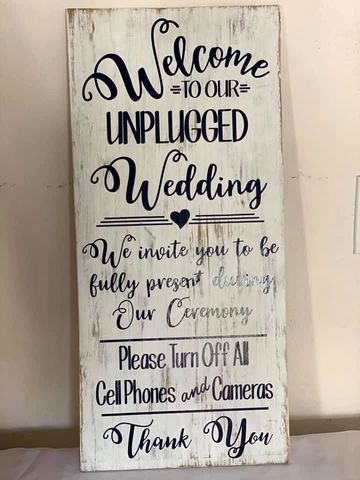 Welcome
TO OUR
UNPLUGGED
Wedding
We invite you to be
fully present during
Our Ceremony
Please Turn Off All
Cell Phones and Cameras
Thank You